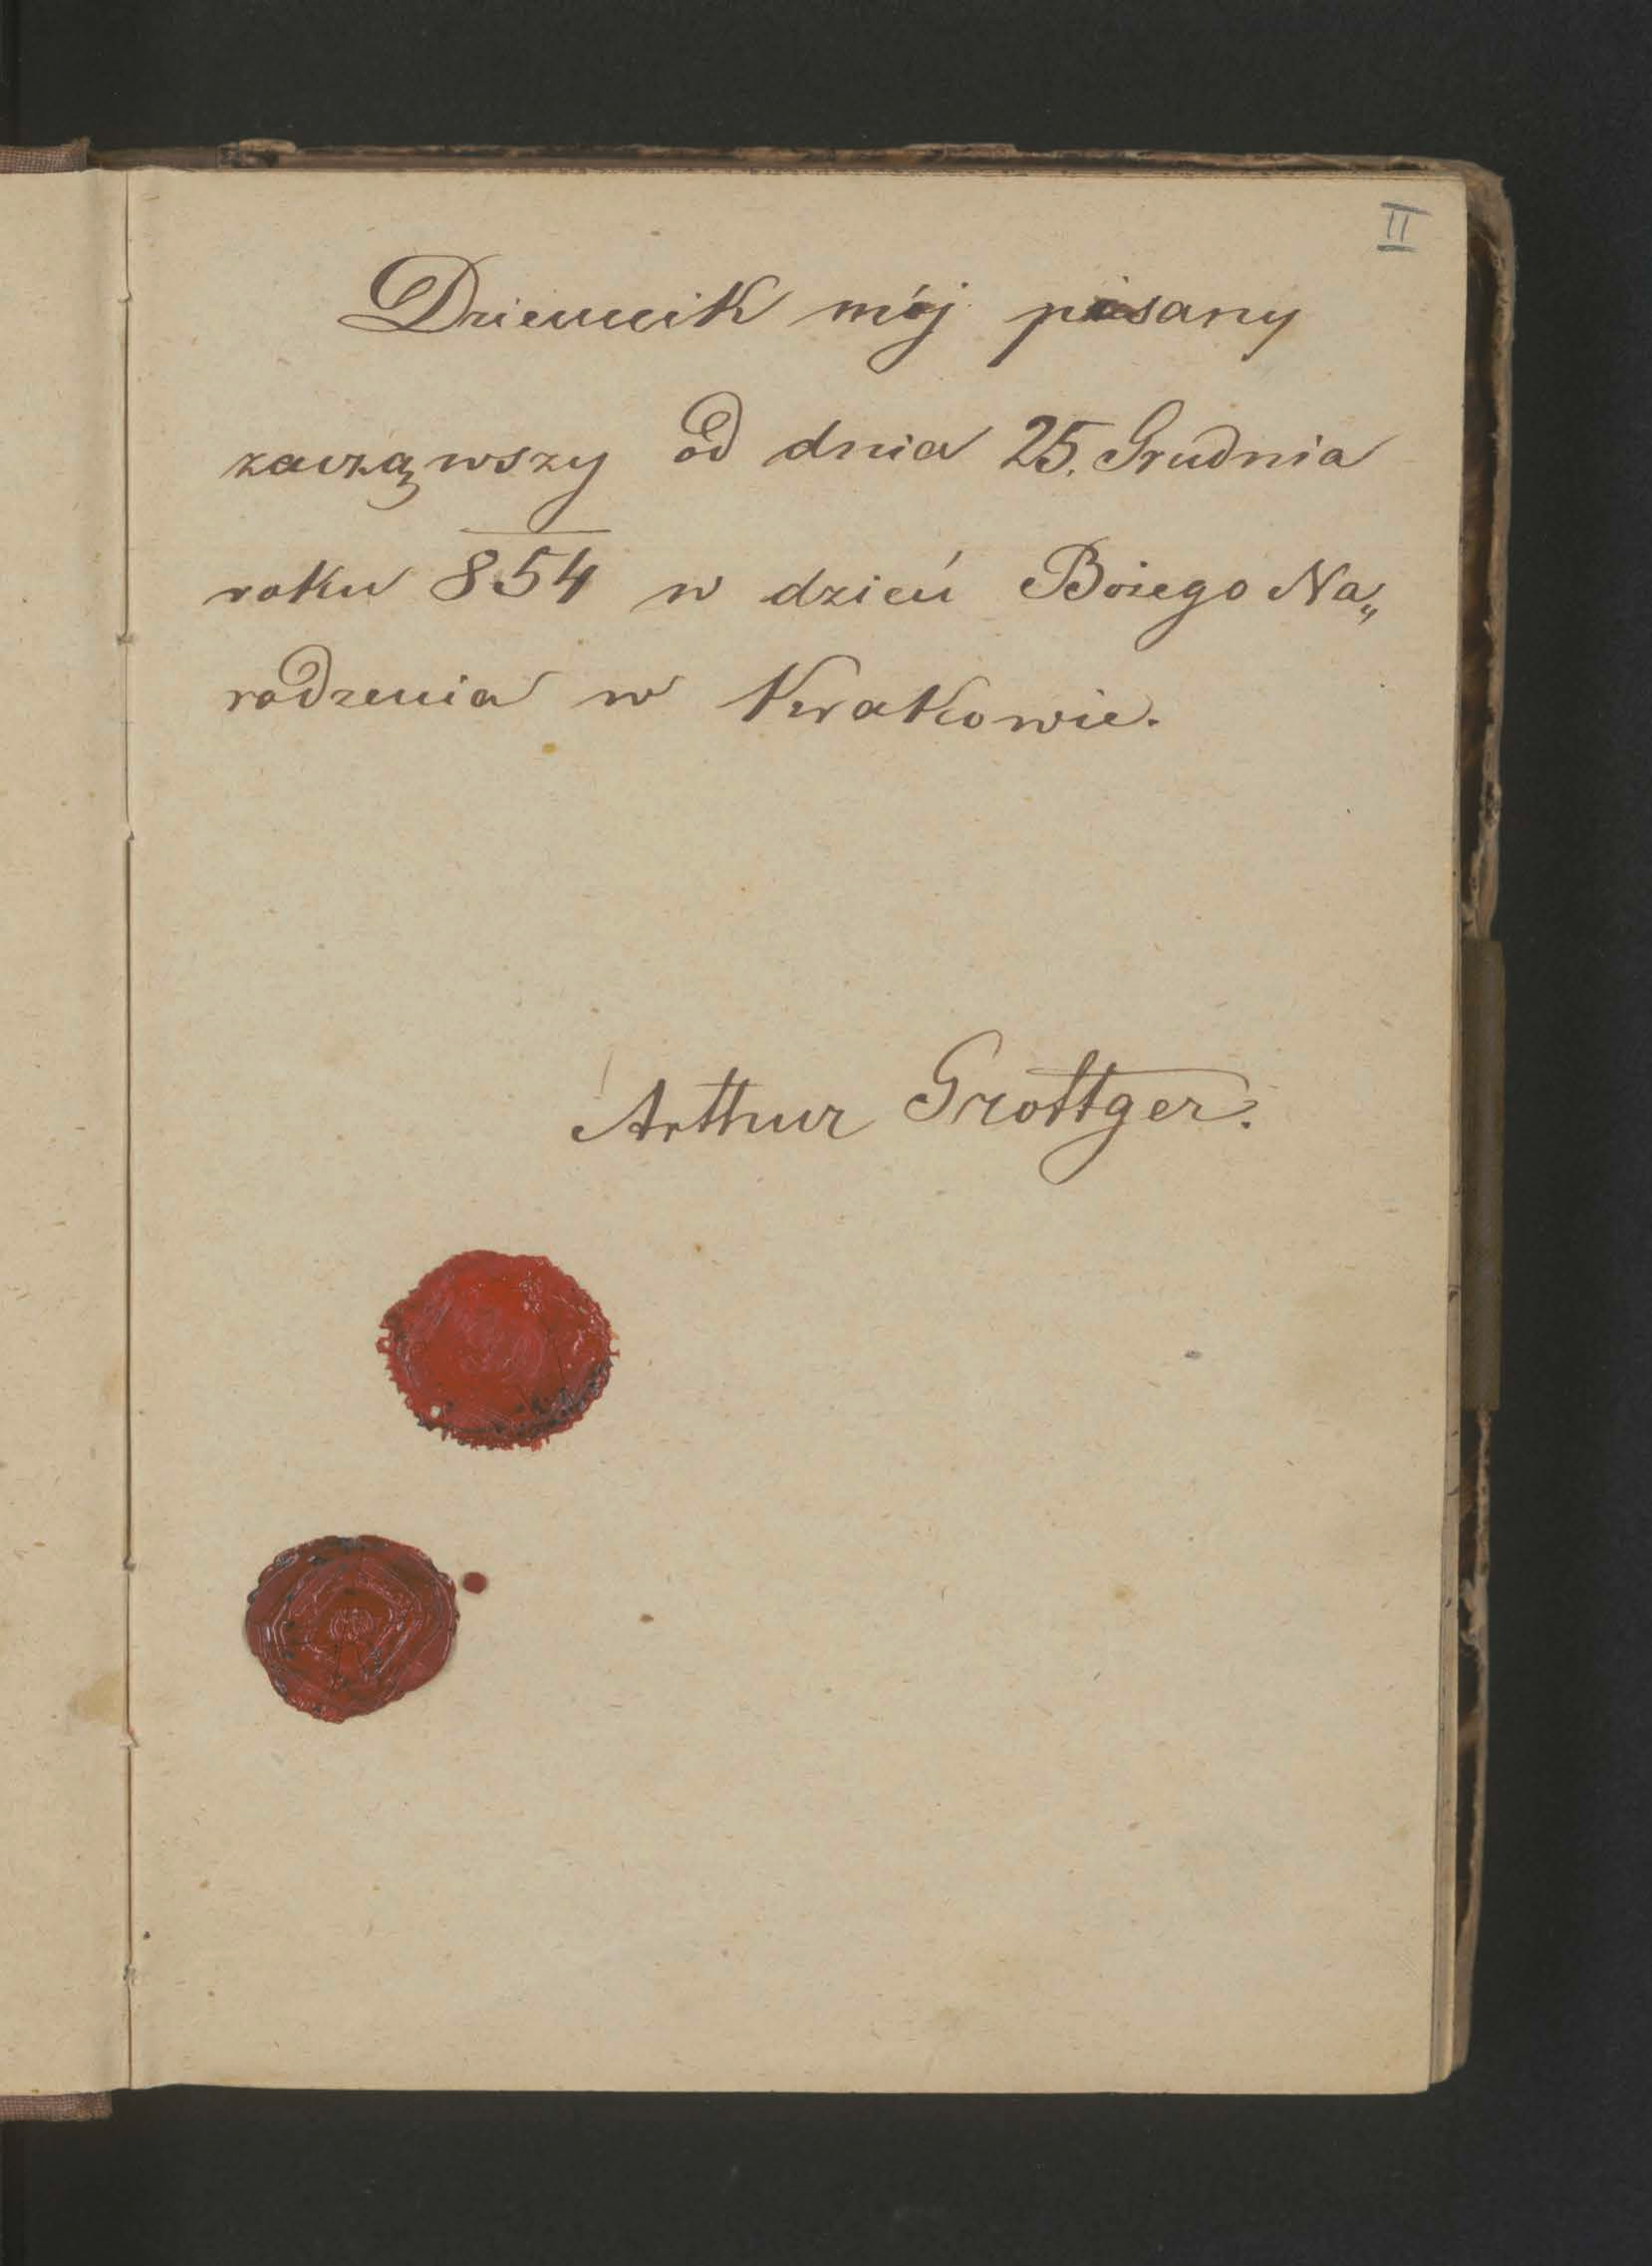 II
Dziennik mój pisany
zacząwszy od dnia 25. Grudnia
roku 854 w dzień Bożego Na„
rodzenia w Krakowie.
Arthur Grottger.